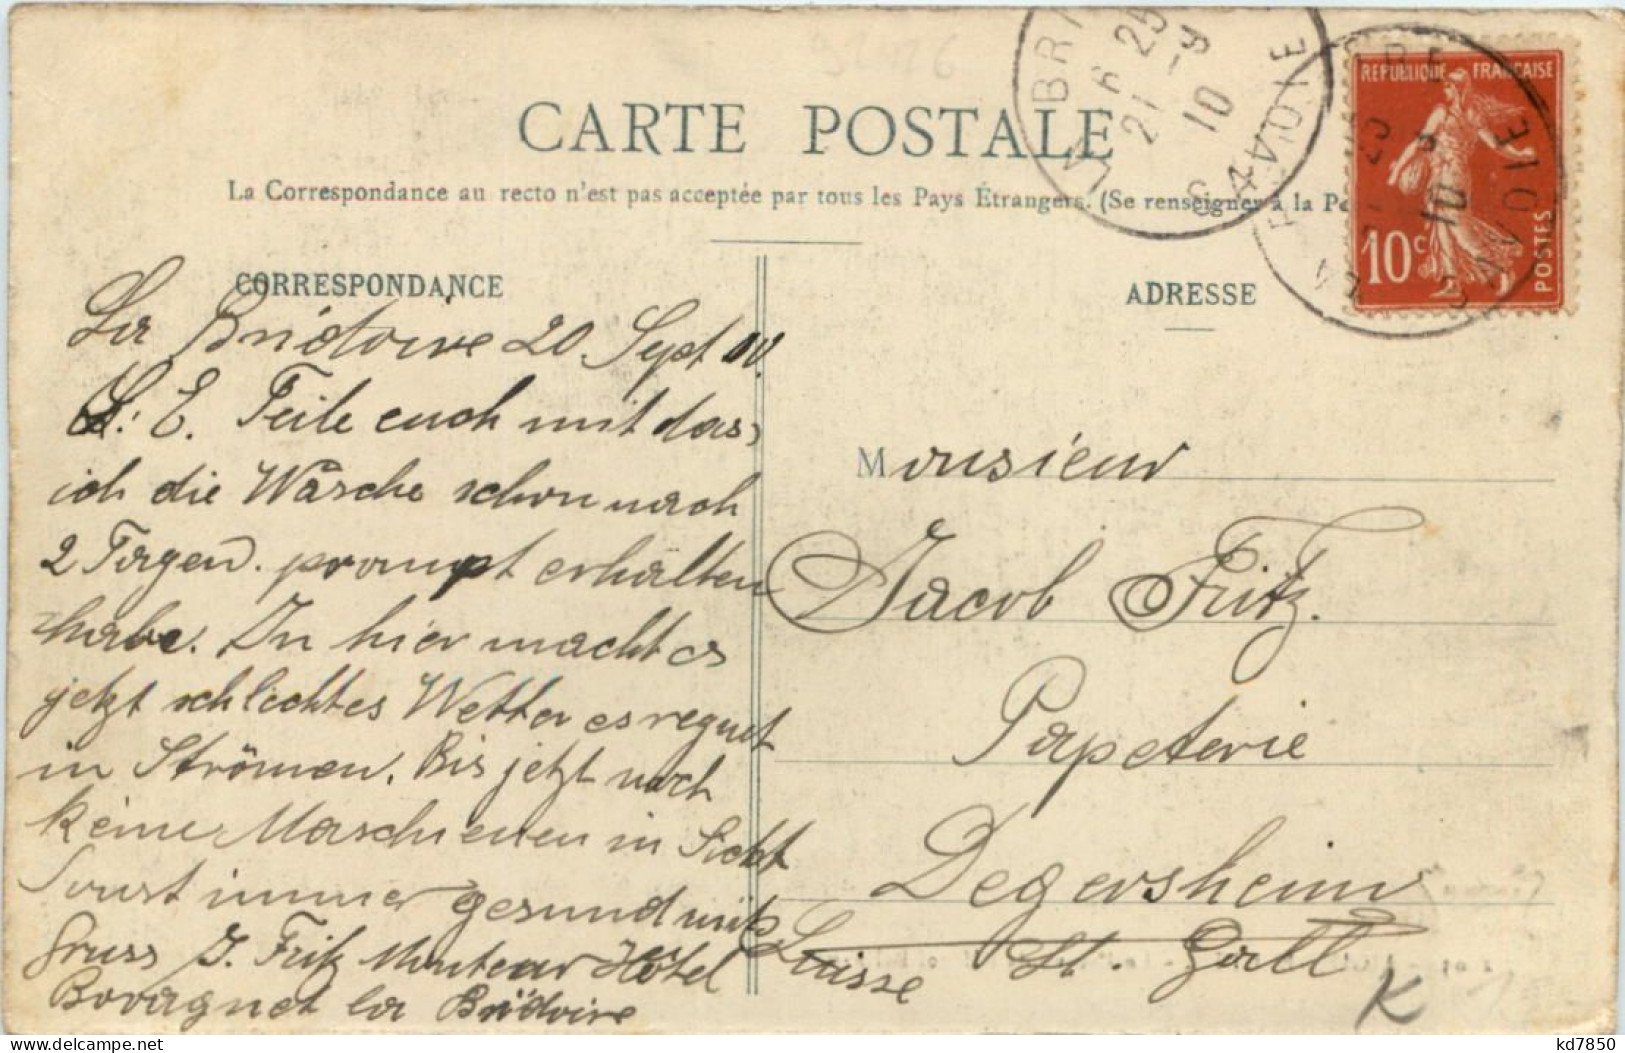 CARTE POSTALE
La Correspondance au recto n'est pas acceptée par tous les Pays Étrangers. (Se renseigner à la
CORRESPONDANCE
La Bridoire 20 Sept 10.
L. E. Teile euch mit das
ich die Wäsche schon nach
2 Tagen. prompt erhalten
habe. In hier macht es
jetzt schlechtes Wetter es regnet
in Strömen. Bis jetzt noch
keine Maschienen in Sicht
Sonst immer gesund mit
Gruss J. Fritz Monteur Hôtel
Bovagnet la Bridoire
ADRESSE
Monsieur
Jacob Fritz.
Papeterie
Degersheim
St. Gall
Suisse
K
REPUBLIQUE FRANÇAISE
10c
POSTES
LA BRI
6 25
21 -9
10
SAVOIE
10
kd7850